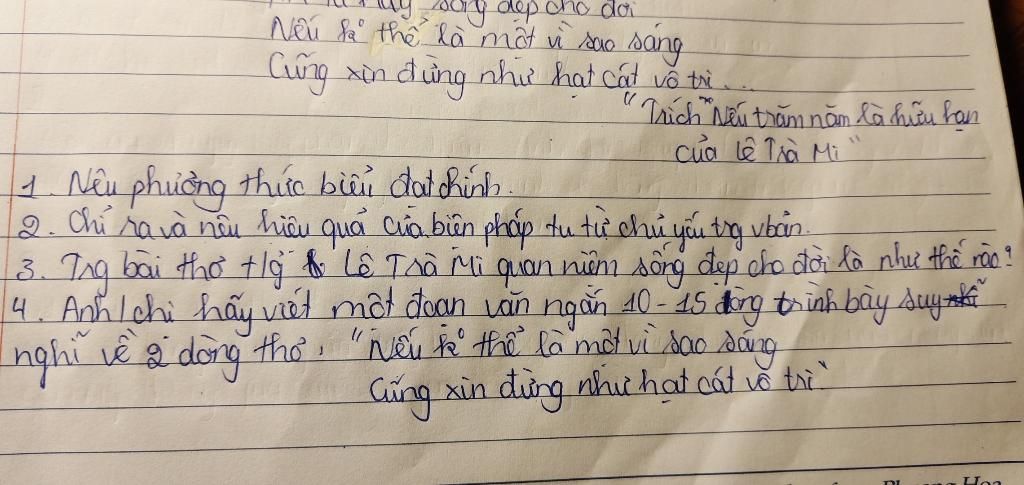 sống đẹp cho đời
Nếu kº thể là một vì sao sáng
Cũng xin đừng như hạt cát vô tri...
"Trích "Nếu trăm năm là hữu hạn
của Lê Trà Mi"
1. Nêu phương thức biểu đạt chính.
2. Chỉ ra và nêu hiệu quả của biện pháp tu từ chủ yếu trg vbản.
3. Trg bài thơ t/g Lê Trà Mi quan niệm sống đẹp cho đời là như thế nào?
4. Anh/chị hãy viết một đoạn văn ngắn 10-15 dòng trình bày suy
nghĩ về 2 dòng thơ. "Nếu kº thể là một vì sao sáng
Cũng xin đừng như hạt cát vô tri"